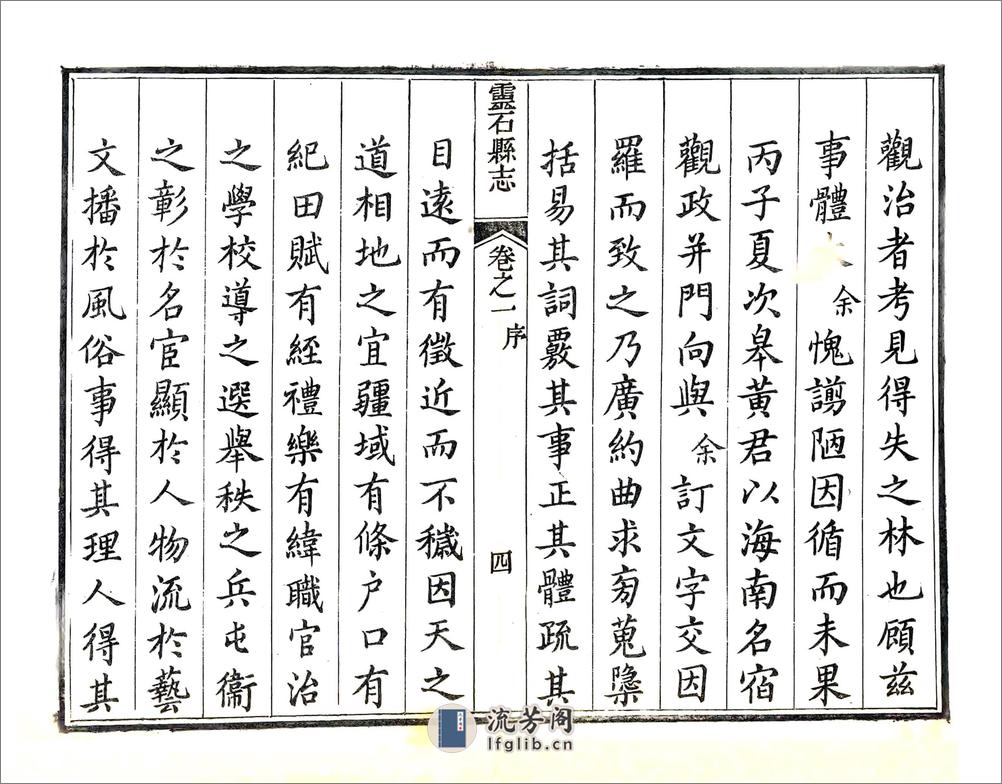 觀治者考見得失之林也顧茲
事體余愧謭陋因循而未果
丙子夏次皋黃君以海南名宿
觀政并門向與余訂文字交因
羅而致之乃廣約曲求旁蒐隱
括易其詞覈其事正其體疏其
靈石縣志
卷之一 序
四
目遠而有徵近而不穢因天之
道相地之宜疆域有條戶口有
紀田賦有經禮樂有緯職官治
之學校導之選舉秩之兵屯衞
之彰於名宦顯於人物流於藝
文播於風俗事得其理人得其
流芳阁
lfglib.cn